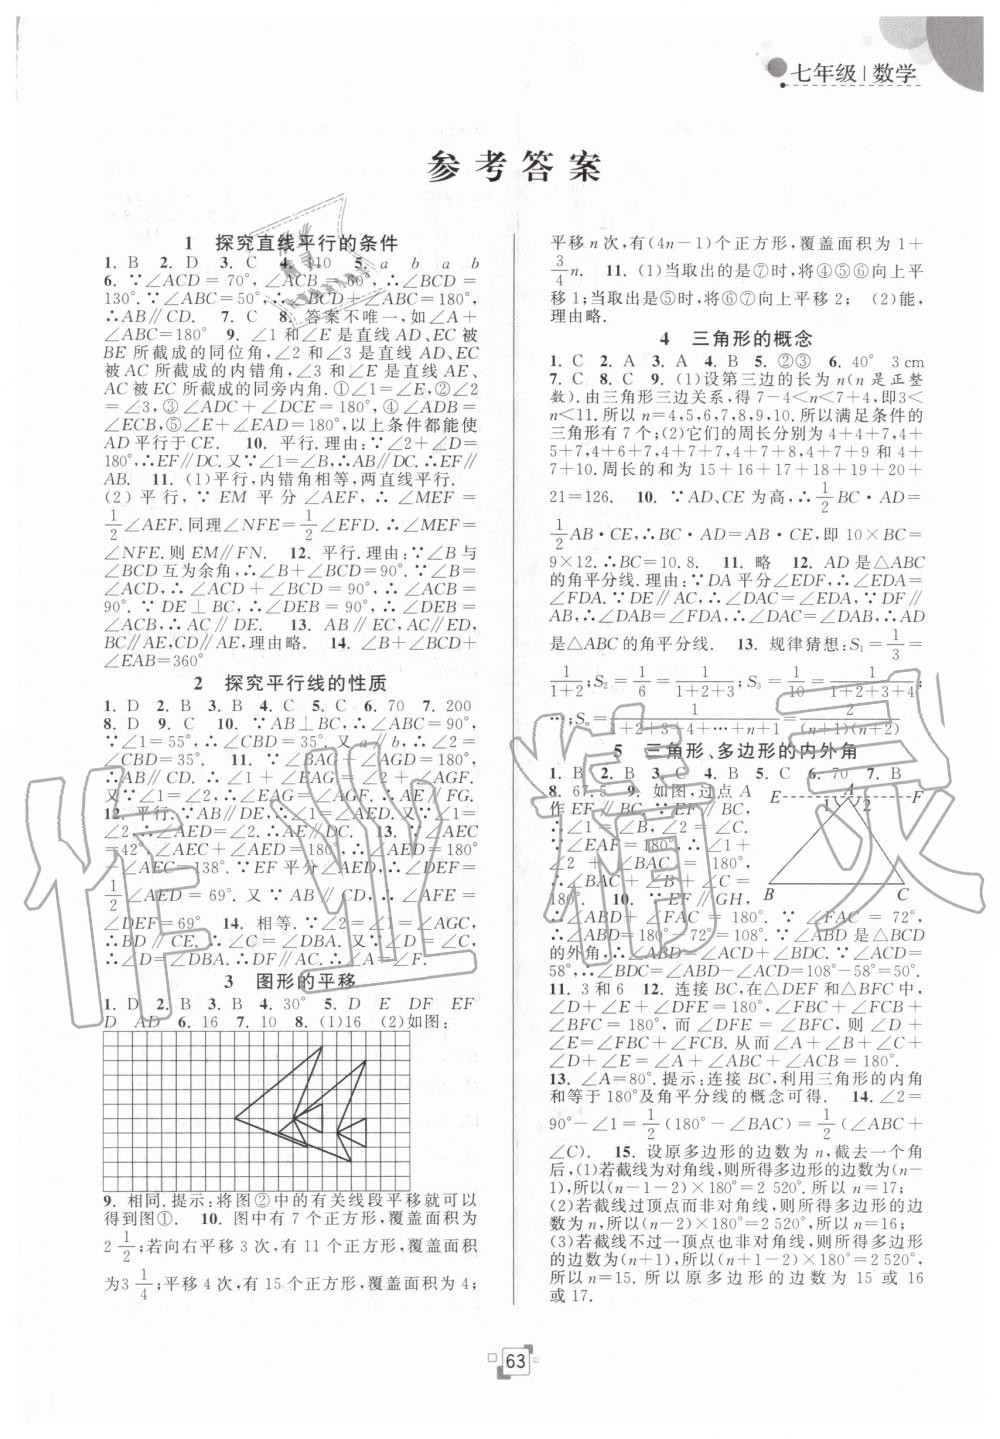 七年级 | 数学
参考答案
1 探究直线平行的条件
1. B 2. D 3. C 4. 140 5. a b a b
6. ∵∠ACD=70°,∠ACB=60°,∴∠BCD=
130°.∵∠ABC=50°,∴∠BCD+∠ABC=180°,
∴AB∥CD. 7. C 8. 答案不唯一,如∠A+
∠ABC=180° 9. ∠1和∠E是直线AD、EC被
BE所截成的同位角,∠2和∠3是直线AD、EC被
AC所截成的内错角,∠3和∠E是直线AE、
AC被EC所截成的同旁内角.①∠1=∠E,②∠2
=∠3,③∠ADC+∠DCE=180°,④∠ADB=
∠ECB,⑤∠E+∠EAD=180°,以上条件都能使
AD平行于CE. 10. 平行.理由:∵∠2+∠D=
180°,∴EF∥DC.又∵∠1=∠B,∴EF∥
AB. 11. (1)平行,内错角相等,两直线平行.
(2)平行,∵EM平分∠AEF,∴∠MEF=
1/2∠AEF.同理∠NFE=1/2∠EFD.∴∠MEF=
∠NFE.则EM∥FN. 12. 平行.理由:∵∠B与
∠BCD互为余角,∴∠B+∠BCD=90°.∵∠B=
∠ACD,∴∠ACD+∠BCD=90°,∴∠ACB=
90°.∵DE⊥BC,∴∠DEB=90°,∴∠DEB=
∠ACB,∴AC∥DE. 13. AB∥EC,AC∥ED,
BC∥AE,CD∥AE,理由略. 14. ∠B+∠BCD+
∠EAB=360°
2 探究平行线的性质
1. D 2. B 3. B 4. C 5. C 6. 70 7. 200
8. D 9. C 10. ∵AB⊥BC,∴∠ABC=90°,
∵∠1=55°,∴∠CBD=35°.又a∥b,∴∠2=
∠CBD=35°. 11. ∵∠BAG+∠AGD=180°,
∴AB∥CD.∴∠BAG=∠AGC.
又∵∠1=∠2,∴∠EAG=∠AGF.∴AE∥FG.
12. 平行.∵AB∥DE,∴∠1=∠AED.又∵∠1=
∠2,∴∠2=∠AED.∴AE∥DC. 13. ∵∠AEC
=42°,∠AEC+∠AED=180°,∴∠AED=180°
-∠AEC=138°.∵EF平分∠AED,∴∠DEF=
1/2∠AED=69°.又∵AB∥CD,∴∠AFE=
∠DEF=69° 14. 相等.∵∠2=∠1=∠AGC,
∴BD∥CE.∴∠C=∠DBA.又∵∠D=∠C,
∴∠D=∠DBA.∴DF∥AC.∴∠A=∠F.
3 图形的平移
1. D 2. B 3. B 4. 30° 5. D E DF EF
D AD 6. 16 7. 10 8. (1)16 (2)如图:
9. 相同.提示:将图②中的有关线段平移就可以
得到图①. 10. 图中有7个正方形,覆盖面积为
2 1/2;若向右平移3次,有11个正方形,覆盖面积
为3 1/4;平移4次,有15个正方形,覆盖面积为4;
平移n次,有(4n-1)个正方形,覆盖面积为1+
3/4 n. 11. (1)当取出的是⑦时,将④⑤⑥向上平
移1;当取出的是⑤时,将⑥⑦向上平移2; (2)能,
理由略.
4 三角形的概念
1. C 2. A 3. A 4. B 5. ②③ 6. 40° 3cm
7. C 8. C 9. (1)设第三边的长为n(n是正整
数).由三角形三边关系,得7-4<n<7+4,即3<
n<11.所以n=4,5,6,7,8,9,10.所以满足条件的
三角形有7个;(2)它们的周长分别为4+4+7,4+
5+7,4+6+7,4+7+7,4+8+7,4+7+9和4+
7+10.周长的和为15+16+17+18+19+20+
21=126. 10. ∵AD、CE为高,∴1/2BC·AD=
1/2AB·CE,∴BC·AD=AB·CE,即10×BC=
9×12.∴BC=10.8. 11. 略 12. AD是△ABC
的角平分线.理由:∵DA平分∠EDF,∴∠EDA=
∠FDA.∵DE∥AC,∴∠DAC=∠EDA,∵DF∥
AB,∴∠DAB=∠FDA,∴∠DAC=∠DAB,∴AD
是△ABC的角平分线. 13. 规律猜想:S₁=1/3=
1/(1+2);S₂=1/6=1/(1+2+3);S₃=1/10=1/(1+2+3+4);
…;Sₙ=1/(1+2+3+4+…+n+1)=2/((n+1)(n+2))
5 三角形、多边形的内外角
1. B 2. B 3. C 4. B 5. C 6. 70 7. B
8. 67.5 9. 如图,过点A
作EF∥BC.∵EF∥BC,
∴∠1=∠B,∠2=∠C.
∵∠EAF=180°,∴∠1+
∠2+∠BAC=180°,
∴∠BAC+∠B+∠C=
180°. 10. ∵EF∥GH,
E A F
1 2
B C
∴∠ABD+∠FAC=180°.∵∠FAC=72°,
∴∠ABD=180°-72°=108°.∵∠ABD是△BCD
的外角,∴∠ABD=∠ACD+∠BDC.∵∠ACD=
58°,∴∠BDC=∠ABD-∠ACD=108°-58°=50°.
11. 3和6 12. 连接BC,在△DEF和△BFC中,
∠D+∠E+∠DFE=180°,∠FBC+∠FCB+
∠BFC=180°,而∠DFE=∠BFC,则∠D+
∠E=∠FBC+∠FCB.从而∠A+∠B+∠C+
∠D+∠E=∠A+∠ABC+∠ACB=180°.
13. ∠A=80°.提示:连接BC,利用三角形的内角
和等于180°及角平分线的概念可得. 14. ∠2=
90°-∠1=1/2(180°-∠BAC)=1/2(∠ABC+
∠C). 15. 设原多边形的边数为n,截去一个角
后,(1)若截线为对角线,则所得多边形的边数为(n-
1),所以(n-1-2)×180°=2 520°,所以n=17;
(2)若截线过顶点而非对角线,则所得多边形的边
数为n,所以(n-2)×180°=2 520°,所以n=16;
(3)若截线不过一顶点也非对角线,则所得多边形
的边数为(n+1),所以(n+1-2)×180°=2 520°,
所以n=15.所以原多边形的边数为15或16
或17.
63
作业精灵